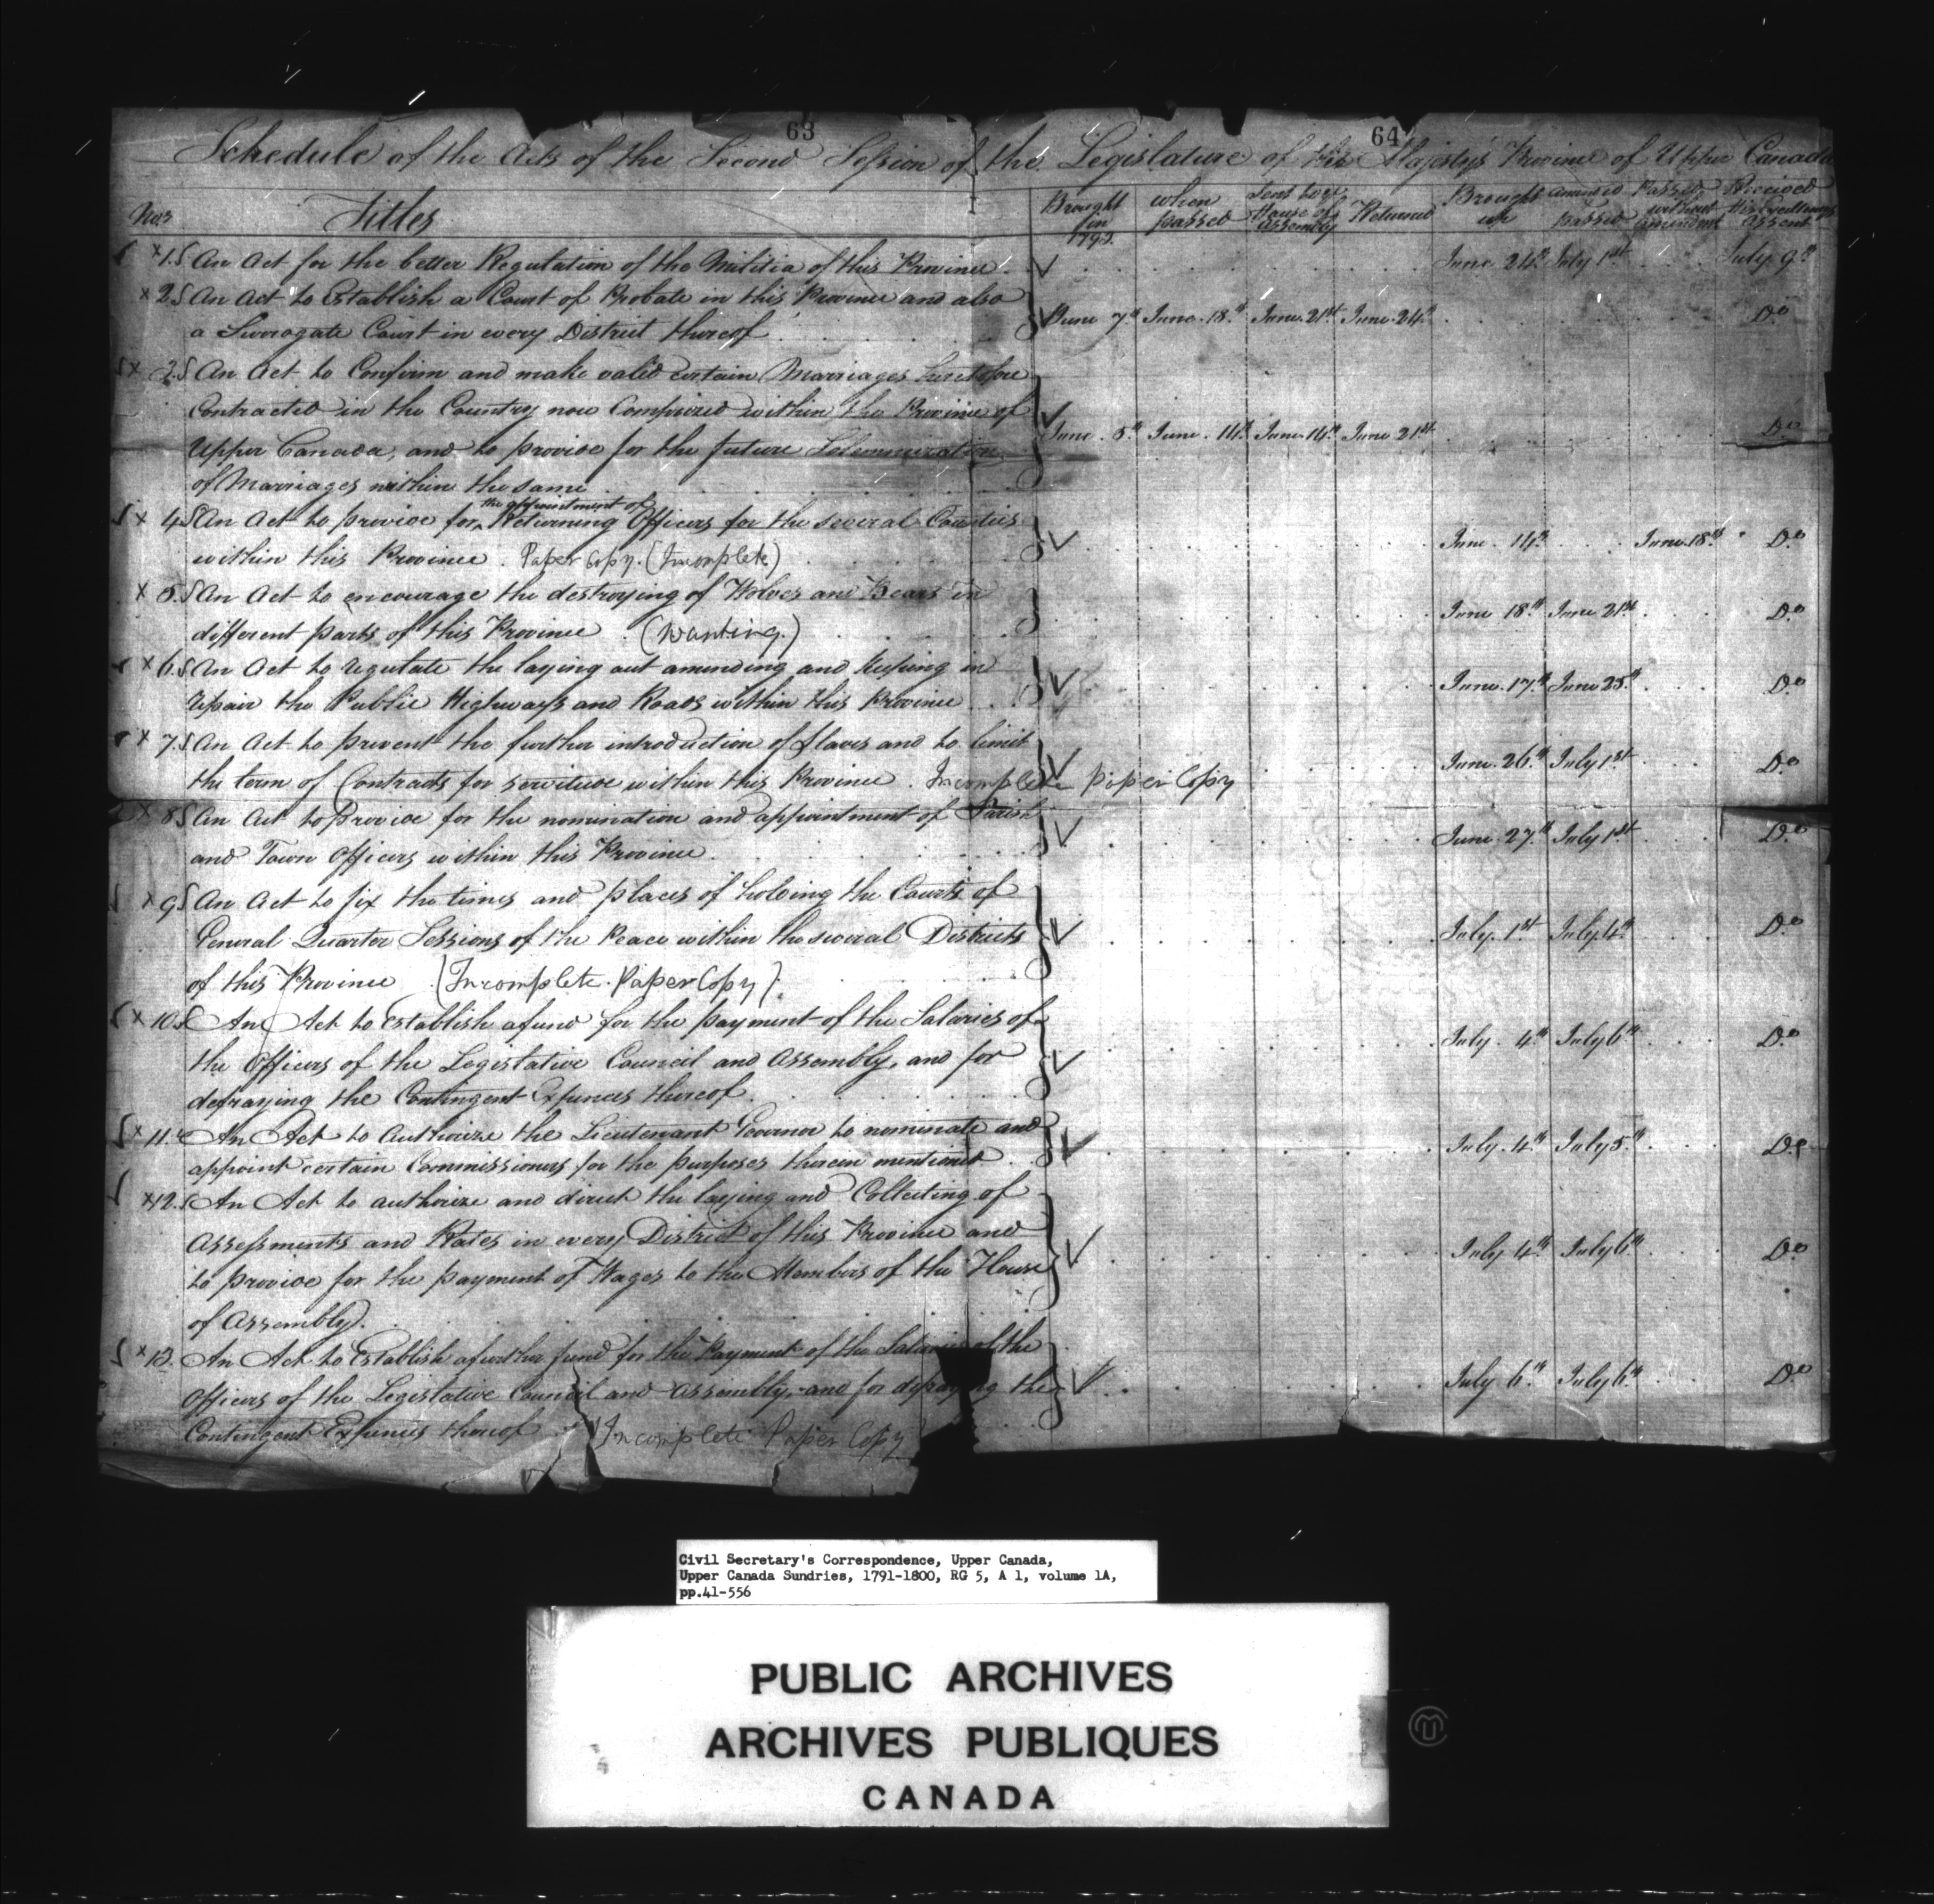 63
64
Schedule of the Acts of the Second Session of the Legislature of His Majesty's Province of Upper Canada
Nos Titles Brought in 1793. when passed Sent to ye House of Assembly Returned Brought up amended & passed Passed without amendmt Received His Excellencys Assent
x 1. An Act for the better Regulation of the Militia of this Province. June 24th July 1st July 9th
x 2. An Act to Establish a Court of Probate in this Province and also
a Surrogate Court in every District thereof June 7th June 18th June 21st June 24th Do
x 3. An Act to Confirm and make valid certain Marriages heretofore
Contracted in the Country now Comprized within the Province of
Upper Canada, and to provide for the future Solemnization June 8th June 14th June 14th June 21st Do
of Marriages within the same
x 4. An Act to provide for the appointment of Returning Officers for the several Counties
within this Province. Paper Copy. (Incomplete) June 14th June 18th Do
x 5. An Act to encourage the destroying of Wolves and Bears in
different parts of this Province (Wanting.) June 18th June 21st Do
x 6. An Act to regulate the laying out amending and keeping in
repair the Public Highways and Roads within this Province June 17th June 25th Do
x 7. An Act to prevent the further introduction of Slaves and to limit
the term of Contracts for servitude within this Province. Incomplete paper Copy June 26th July 1st Do
x 8. An Act to Provide for the nomination and appointment of Parish
and Town Officers within this Province. June 27th July 1st Do
x 9. An Act to fix the times and places of holding the Courts of
General Quarter Sessions of the Peace within the several Districts July 1st July 4th Do
of this Province (Incomplete. Paper Copy)
x 10. An Act to Establish a fund for the payment of the Salaries of
the Officers of the Legislative Council and Assembly, and for July 4th July 6th Do
defraying the Contingent Expences thereof.
x 11. An Act to Authorize the Lieutenant Governor to nominate and
appoint certain Commissioners for the purposes therein mentioned. July 4th July 5th Do
x 12. An Act to authorize and direct the laying and Collecting of
Assessments and Rates in every District of this Province and
to provide for the payment of Wages to the Members of the House July 4th July 6th Do
of Assembly.
x 13. An Act to Establish a further fund for the Payment of the Salaries of the
Officers of the Legislative Council and Assembly, and for defraying the July 6th July 6th Do
Contingent Expences thereof Incomplete Paper Copy
Civil Secretary's Correspondence, Upper Canada,
Upper Canada Sundries, 1791-1800, RG 5, A 1, volume 1A,
pp.41-556
PUBLIC ARCHIVES
ARCHIVES PUBLIQUES
CANADA